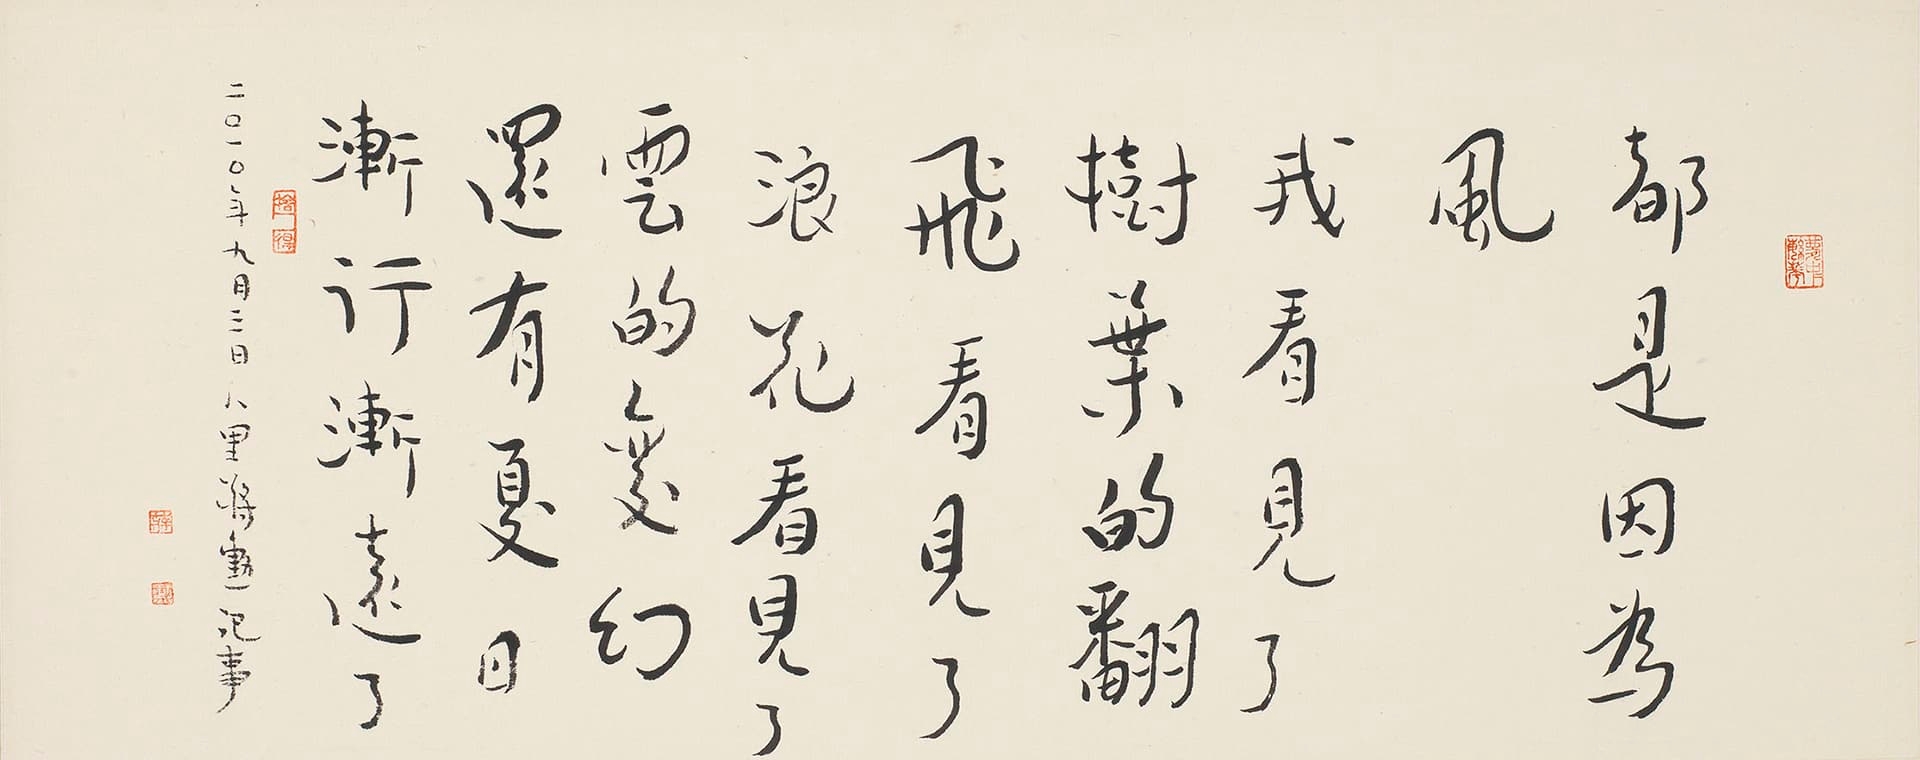 都是因為
風
我看見了
樹葉的翻
飛看見了
浪花看見了
雲的變幻
還有夏日
漸行漸遠了
捨得
二〇一〇年九月三日八里蔣勳記事